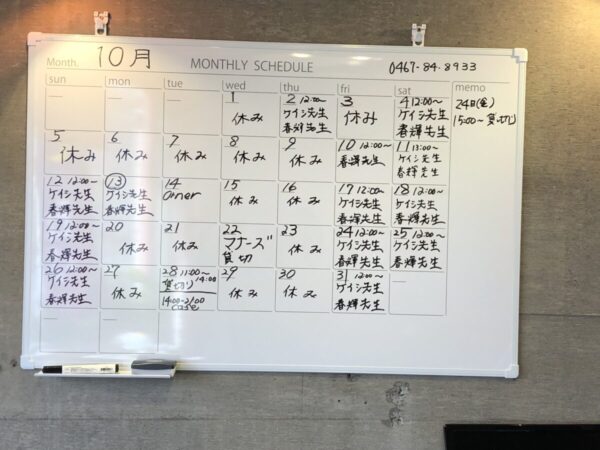 Month. 10月 MONTHLY SCHEDULE 0467-84-8933
sun mon tue wed thu fri sat memo
1 休み
2 12:00~
ケイシ先生
春輝先生
3 休み
4 12:00~
ケイシ先生
春輝先生
24日(金)
15:00~貸切
5 休み
6 休み
7 休み
8 休み
9 休み
10 12:00~
春輝先生
11 13:00~
ケイシ先生
春輝先生
12 12:00~
ケイシ先生
春輝先生
13
ケイシ先生
春輝先生
14
15 休み
16 休み
17 12:00~
ケイシ先生
春輝先生
18 12:00~
ケイシ先生
春輝先生
19 12:00~
ケイシ先生
春輝先生
20 休み
21 休み
22
マナーズ
貸切
23 休み
24 12:00~
ケイシ先生
春輝先生
25 12:00~
ケイシ先生
春輝先生
26 12:00~
ケイシ先生
春輝先生
27 休み
28 11:00~
貸切 14:00
14:00-21:00
29 休み
30 休み
31 12:00~
ケイシ先生
春輝先生